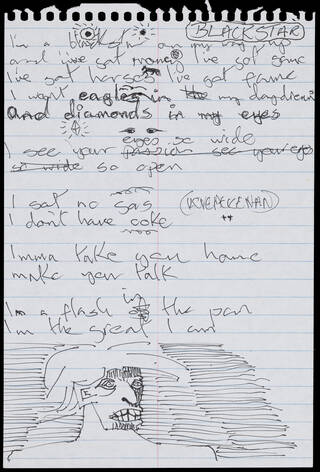 BLACKSTAR
I'm a blackstar on my way up
and I've got money I've got game
I've got horses I've got fame
I want eagles in the my daydreams
And diamonds in my eyes
eyes so wide
I see your passion see your eyes
so wide so open
I sat no gas
I don't have coke
++
Imma take you home
make you talk
I'm a flash in the pan
I'm the great I am